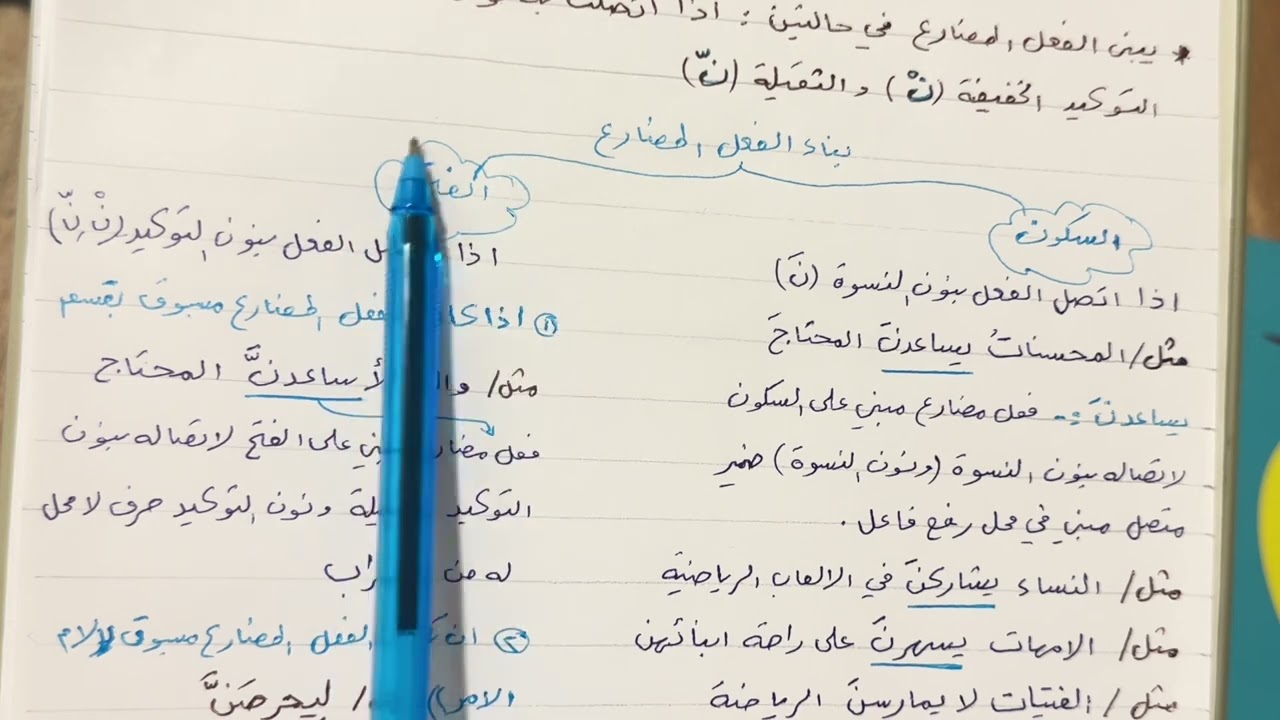 * يبنى الفعل المضارع في حالتين : اذا اتصلت
التوكيد الخفيفة (نْ) والثقيلة (نّ)
بناء الفعل المضارع
السكون
اذا اتصل الفعل بنون النسوة (نَ)
مثل/ المحسناتُ يساعدنَ المحتاجَ
يساعدنَ :- فعل مضارع مبني على السكون
لاتصاله بنون النسوة (ونون النسوة) ضمير
متصل مبني في محل رفع فاعل .
مثل/ النساء يشاركنَ في الالعاب الرياضية
مثل/ الامهات يسهرنَ على راحة ابنائهن
مثل/ الفتيات لا يمارسنَ الرياضة
اذا الفعل بنون التوكيد (نْ، نّ)
① اذا المضارع مسبوق بقسم
مثل/ لأساعدنَّ المحتاج
فعل على الفتح لاتصاله بنون
التوكيد ونون التوكيد حرف لا محل
له من
② الفعل المضارع مسبوق بلام
الامر) / ليحرصَنَّ